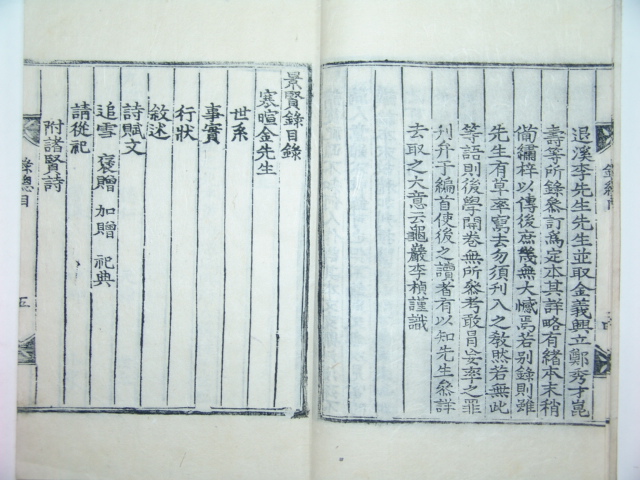 退溪李先生先生並取金義興立鄭秀才崑
壽等所錄叅訂爲定本其詳略有緖本末稍
備繡梓以傳後庶幾無大憾焉若別錄則雖
先生有草率寫去勿須刊入之敎然若無此
等語則後學開卷無所叅考敢冒妄率之罪
刊弁于編首使後之讀者有以知先生叅詳
去取之大意云龜巖李楨謹識
景賢錄目錄
寒暄金先生
世系
事實
行狀
敘述
詩賦文
追雪 褒贈 加贈 祀典
請從祀
附諸賢詩
錄總目
五